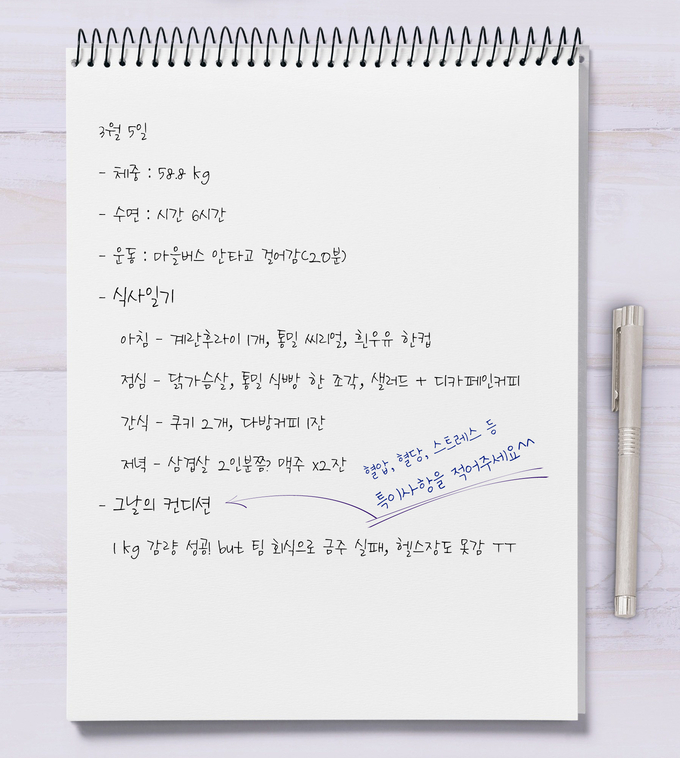 3월 5일
- 체중 : 58.8 kg
- 수면 : 시간 6시간
- 운동 : 마을버스 안타고 걸어감(20분)
- 식사일기
아침 - 계란후라이 1개, 통밀 씨리얼, 흰우유 한컵
점심 - 닭가슴살, 통밀 식빵 한 조각, 샐러드 + 디카페인커피
간식 - 쿠키 2개, 다방커피 1잔
저녁 - 삼겹살 2인분쯤? 맥주 x2잔
혈압, 혈당, 스트레스 등
특이사항을 적어주세요^^
- 그날의 컨디션
1 kg 감량 성공! but 팀 회식으로 금주 실패, 헬스장도 못감 ㅜㅜ